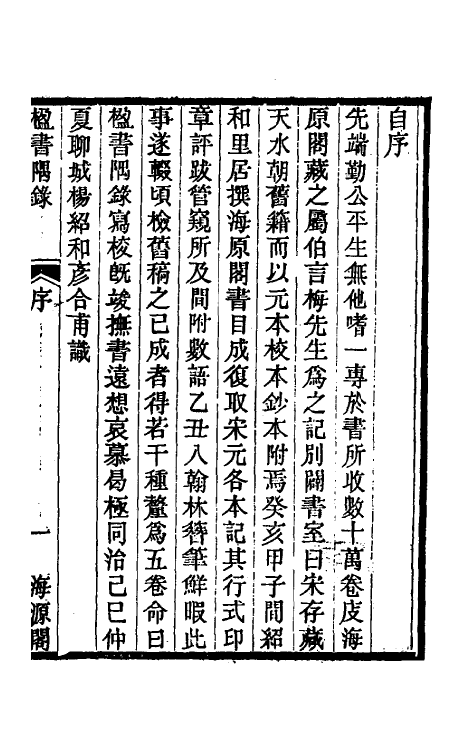 自序
先端勤公平生無他嗜一專於書所收數十萬卷庋海
原閣藏之屬伯言梅先生為之記別闢書室曰宋存藏
天水朝舊籍而以元本校本鈔本附焉癸亥甲子間紹
和里居撰海原閣書目成復取宋元各本記其行式印
章評跋管窺所及間附數語乙丑入翰林簪筆鮮暇此
事遂輟頃檢舊稿之已成者得若干種釐為五卷命曰
楹書隅錄寫校旣竣撫書遠想哀慕曷極同治己巳仲
夏聊城楊紹和彥合甫識
楹書隅錄 序 一 海源閣